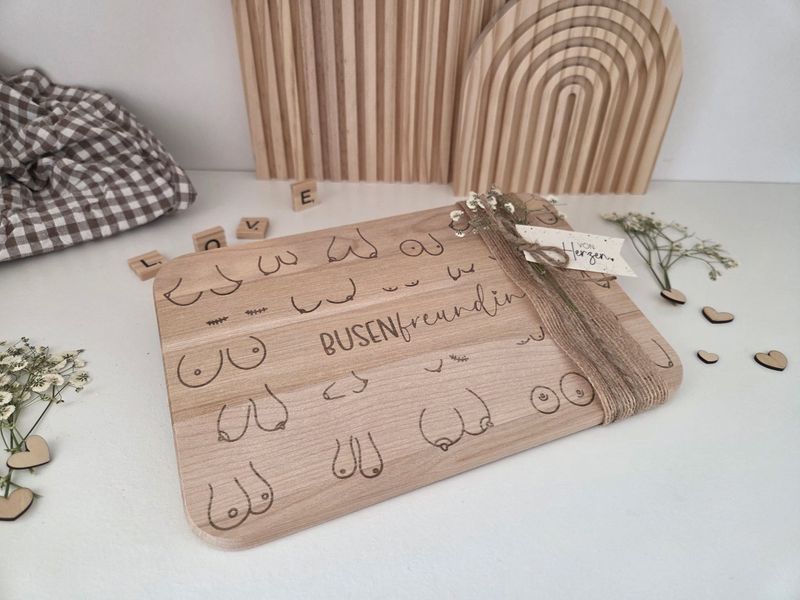 L O V E
VON
Herzen
BUSENfreundin